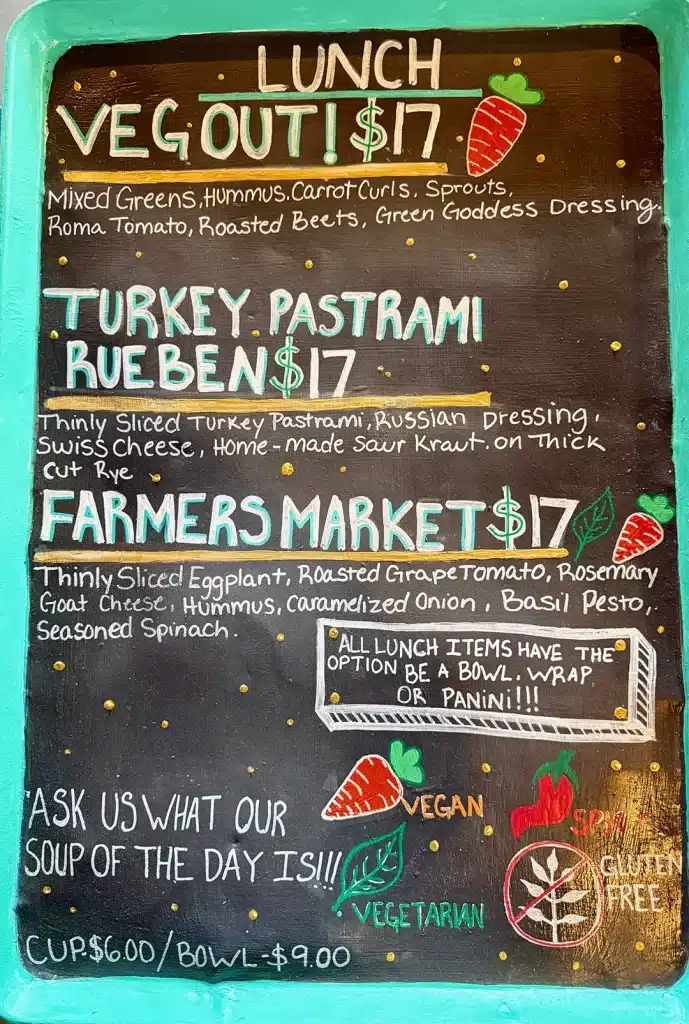 LUNCH
VEG OUT! $17
Mixed Greens, Hummus, Carrot Curls, Sprouts,
Roma Tomato, Roasted Beets, Green Goddess Dressing.
TURKEY PASTRAMI
RUEBEN $17
Thinly Sliced Turkey Pastrami, Russian Dressing,
Swiss Cheese, Home-made Saur Kraut. on Thick
cut Rye
FARMERS MARKET $17
Thinly Sliced Eggplant, Roasted Grape Tomato, Rosemary
Goat Cheese, Hummus, Caramelized Onion, Basil Pesto,
Seasoned Spinach.
ALL LUNCH ITEMS HAVE THE
OPTION BE A BOWL, WRAP
OR PANINI!!!
ASK US WHAT OUR
SOUP OF THE DAY IS!!!
CUP-$6.00/BOWL-$9.00
VEGAN
SPICY
VEGETARIAN
GLUTEN
FREE